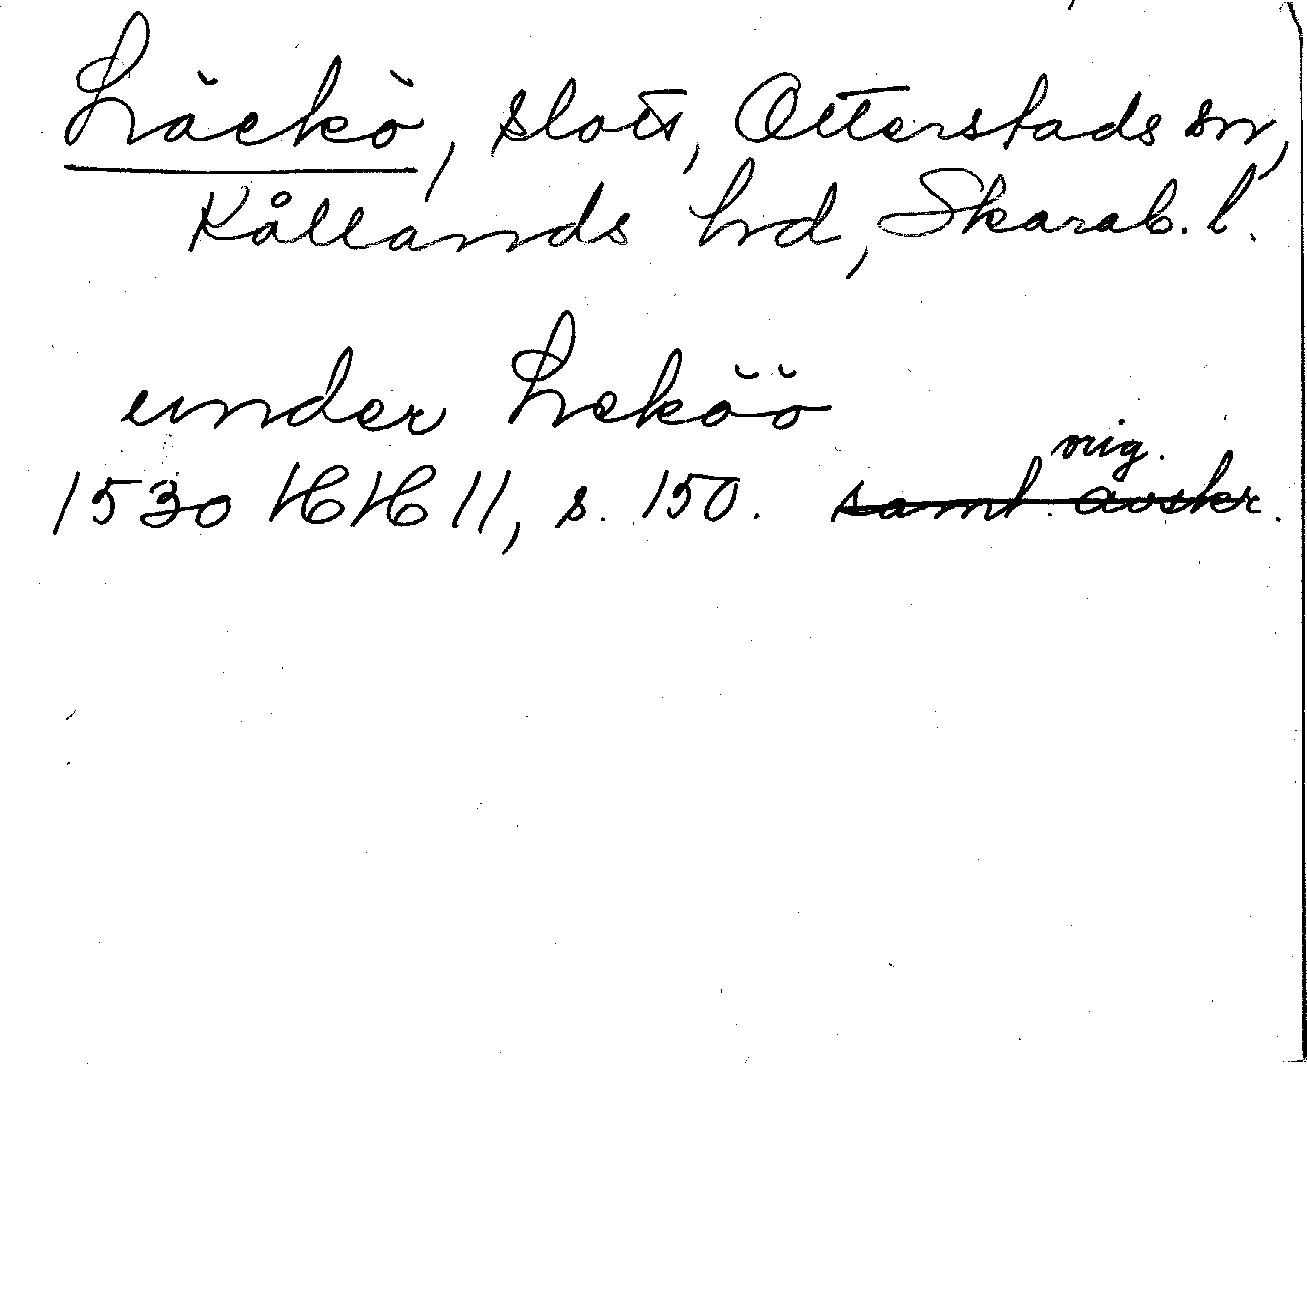 Läckö, slott, Otterstads sn,
Kållands hd, Skarab. l.
under Leköö
orig.
1530 HH 11, s. 150. saml. avskr.